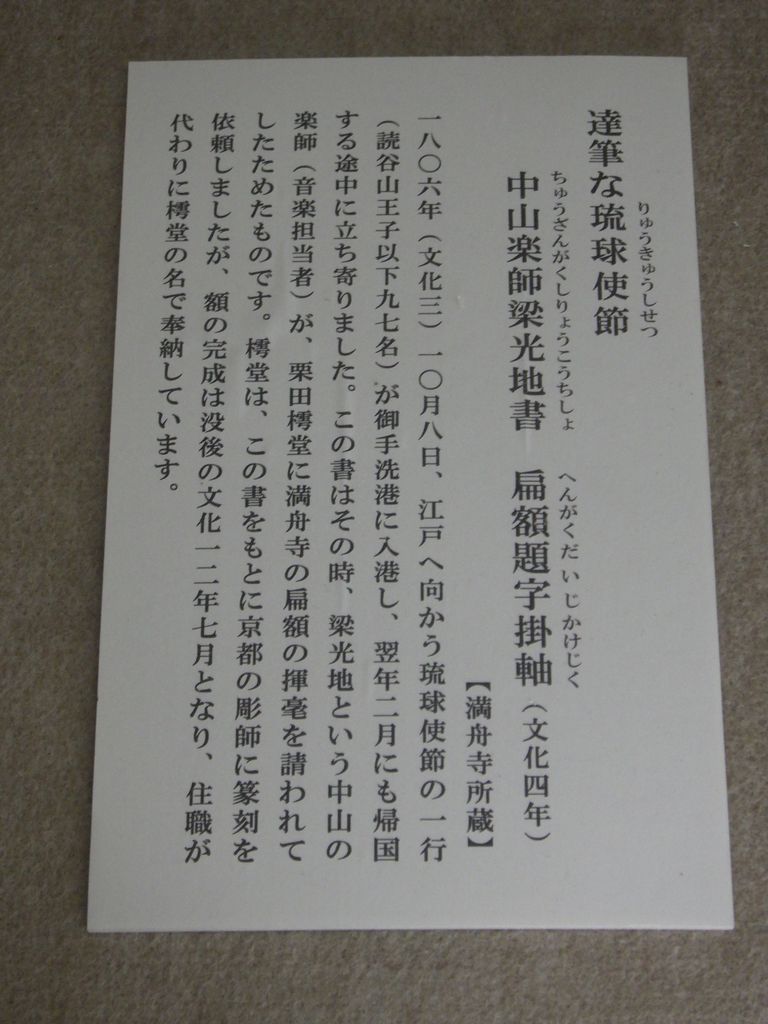 達筆な琉球使節
りゅうきゅうしせつ
中山楽師梁光地書 扁額題字掛軸(文化四年)
ちゅうざんがくしりょうこうちしょ へんがくだいじかけじく
【満舟寺所蔵】
一八〇六年(文化三)一〇月八日、江戸へ向かう琉球使節の一行
(読谷山王子以下九七名)が御手洗港に入港し、翌年二月にも帰国
する途中に立ち寄りました。この書はその時、梁光地という中山の
楽師(音楽担当者)が、栗田樗堂に満舟寺の扁額の揮毫を請われて
したためたものです。樗堂は、この書をもとに京都の彫師に篆刻を
依頼しましたが、額の完成は没後の文化一二年七月となり、住職が
代わりに樗堂の名で奉納しています。